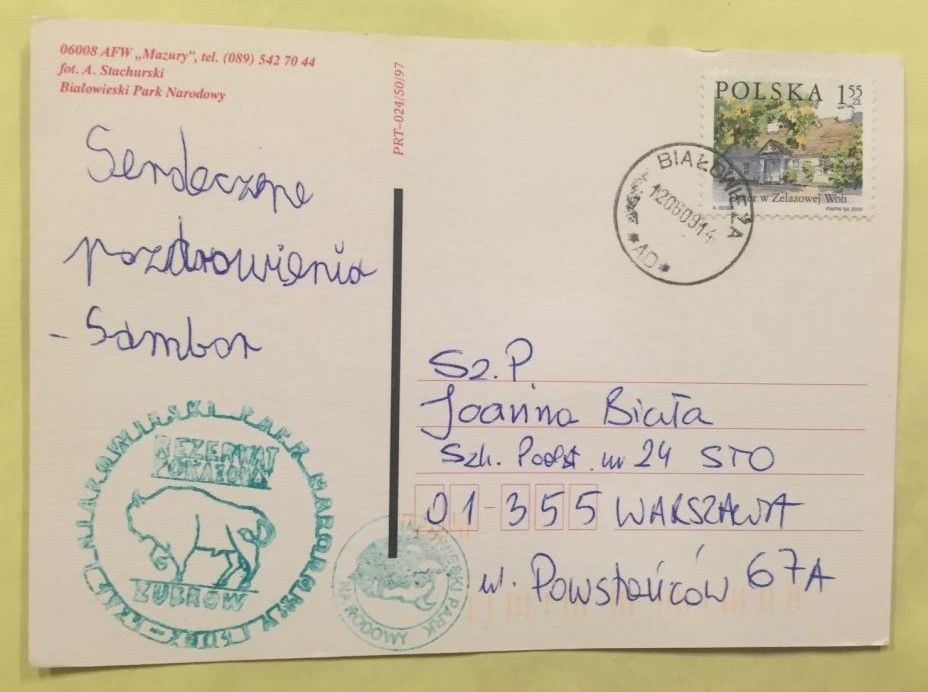 06008 AFW „Mazury", tel. (089) 542 70 44
fot. A. Stachurski
Białowieski Park Narodowy
PRT–024/50/97
POLSKA 1 55 ZŁ
w Żelazowej Woli
BIAŁOWIEŻA
120609 14
*AD*
Serdeczne
pozdrowienia
- Sambor
Sz. P
Joanna Biała
Szk. Podst. nr 24 STO
01-355 WARSZAWA
ul. Powstańców 67A
REZERWAT
POKAZOWY
ŻUBRÓW
PARK
NARODOWY